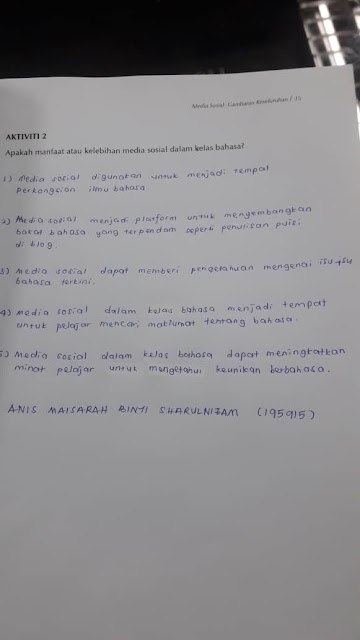 Media Sosial: Gamitanus Keseluruhan / 15
AKTIVITI 2
Apakah manfaat atau kelebihan media sosial dalam kelas bahasa?
1) Media sosial digunakan untuk menjadi tempat
perkongsian ilmu bahasa.
2) Media sosial menjadi platform untuk mengembangkan
bakat bahasa yang terpendam seperti penulisan puisi
di blog.
3) Media sosial dapat memberi pengetahuan mengenai isu-isu
bahasa terkini.
4) Media sosial dalam kelas bahasa menjadi tempat
untuk pelajar mencari maklumat tentang bahasa.
5) Media sosial dalam kelas bahasa dapat meningkatkan
minat pelajar untuk mengetahui keunikan berbahasa.
ANIS MAISARAH BINTI SHARULNIZAM (195915)